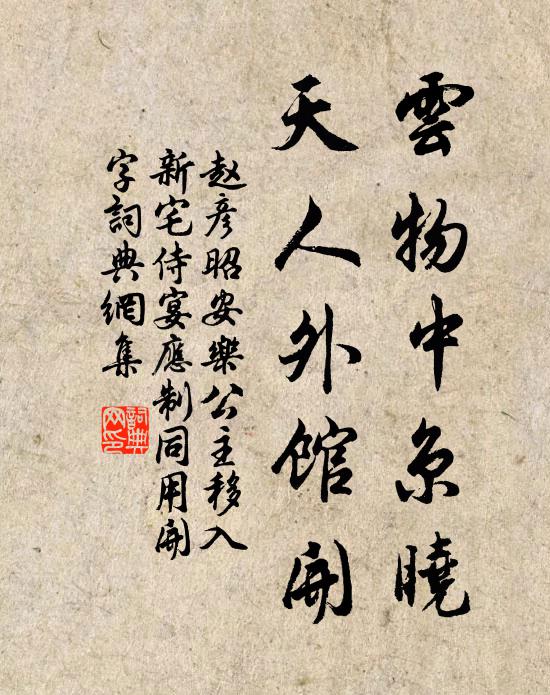 雲物中京曉
天人外館開
赵彦昭安樂公主移入
新宅侍宴應制同用開
字詞典網集
詞典
网印